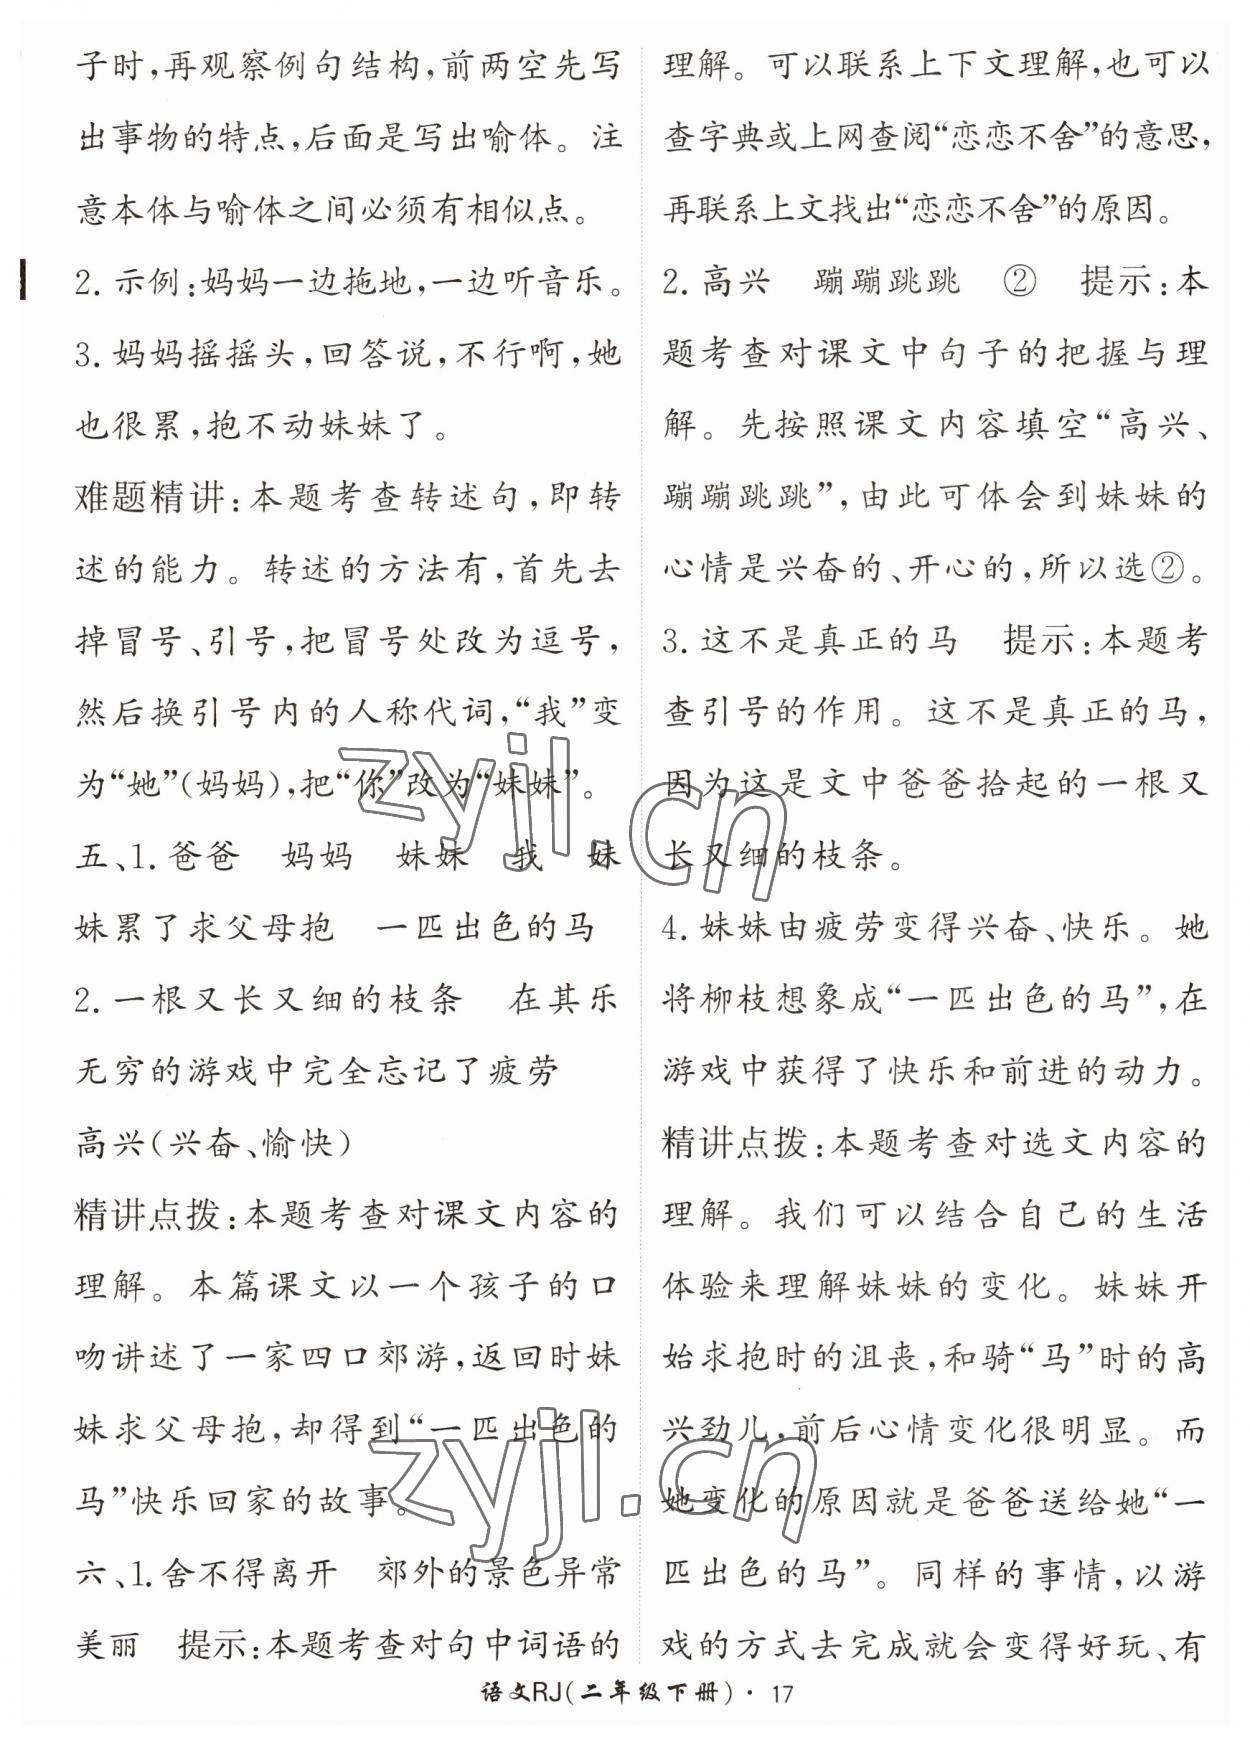 子时,再观察例句结构,前两空先写
出事物的特点,后面是写出喻体。注
意本体与喻体之间必须有相似点。
2. 示例:妈妈一边拖地,一边听音乐。
3. 妈妈摇摇头,回答说,不行啊,她
也很累,抱不动妹妹了。
难题精讲:本题考查转述句,即转
述的能力。转述的方法有,首先去
掉冒号、引号,把冒号处改为逗号,
然后换引号内的人称代词,“我”变
为“她”(妈妈),把“你”改为“妹妹”。
五、1. 爸爸 妈妈 妹妹 我 妹
妹累了求父母抱 一匹出色的马
2. 一根又长又细的枝条 在其乐
无穷的游戏中完全忘记了疲劳
高兴(兴奋、愉快)
精讲点拨:本题考查对课文内容的
理解。本篇课文以一个孩子的口
吻讲述了一家四口郊游,返回时妹
妹求父母抱,却得到“一匹出色的
马”快乐回家的故事。
六、1. 舍不得离开 郊外的景色异常
美丽 提示:本题考查对句中词语的
理解。可以联系上下文理解,也可以
查字典或上网查阅“恋恋不舍”的意思,
再联系上文找出“恋恋不舍”的原因。
2. 高兴 蹦蹦跳跳 ② 提示:本
题考查对课文中句子的把握与理
解。先按照课文内容填空“高兴、
蹦蹦跳跳”,由此可体会到妹妹的
心情是兴奋的、开心的,所以选②。
3. 这不是真正的马 提示:本题考
查引号的作用。这不是真正的马,
因为这是文中爸爸拾起的一根又
长又细的枝条。
4. 妹妹由疲劳变得兴奋、快乐。她
将柳枝想象成“一匹出色的马”,在
游戏中获得了快乐和前进的动力。
精讲点拨:本题考查对选文内容的
理解。我们可以结合自己的生活
体验来理解妹妹的变化。妹妹开
始求抱时的沮丧,和骑“马”时的高
兴劲儿,前后心情变化很明显。而
她变化的原因就是爸爸送给她“一
匹出色的马”。同样的事情,以游
戏的方式去完成就会变得好玩、有
语文RJ(二年级下册)·17
zyjl.cn
zyjl.cn